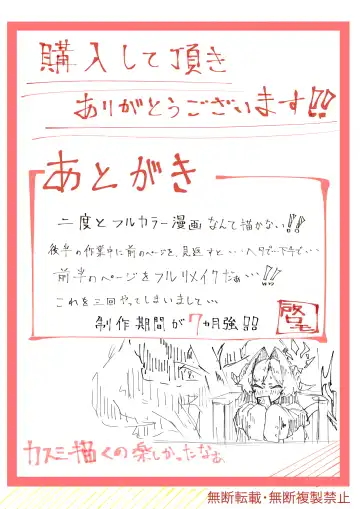 購入して頂き
ありがとうございます!!
あとがき
二度とフルカラー漫画なんて描かない!!
後半の作業中に前のページを見返すと…ヘタでー下手で…
前半のページをフルリメイクだぁ…!!
これを三回やってしまいまして…
制作期間が7ヵ月強!!
カスミ描くの楽しかったなぁ
無断転載・無断複製禁止